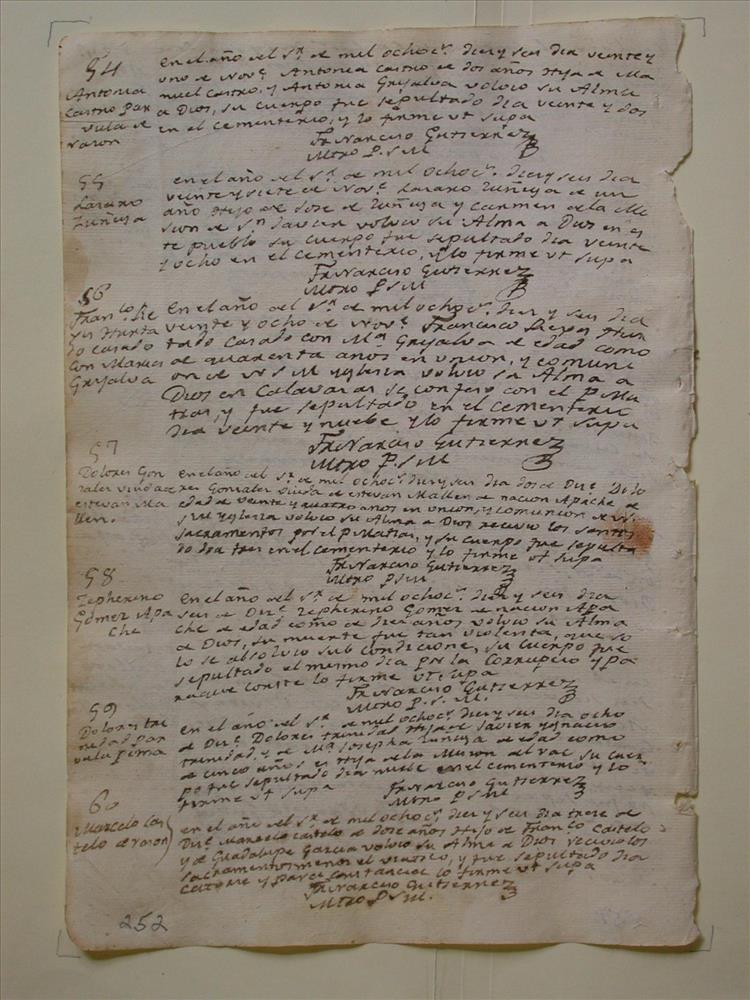 54
Antonia
Castro Par
vula de
razon
en el año del Sr. de mil ochocs. diez y seis dia veinte y
uno de Nove. Antonia Castro de dos años Hija de Ma
nuel Castro, y Antonia Grijalva volvio su Alma
a Dios, su cuerpo fue sepultado dia veinte y dos
en el cementerio, y lo firme ut supa
Fr. Narciso Gutierrez
Mtro P. S. M.
55
Lazaro
Zuñiga
en el año del Sr. de mil ochocs. diez y seis dia
veinte y siete de Nove. Lazaro Zuñiga de un
año Hijo de Jose de Zuñiga y Carmen de la Mi
sion de Sn Javier volvio su Alma a Dios en es
te pueblo su cuerpo fue sepultado dia veinte
y ocho en el cementerio, y lo firme ut supa
Fr. Narciso Gutierrez
Mtro P. S. M
56
Franco. Re
yes Hurta
do casado
con Maria
Grijalva
En el año del Sr. de mil ochocs. diez y seis dia
veinte y ocho de Nove. Francisco Reyes Hur
tado casado con Ma. Grijalva de edad como
de quarenta años en union, y comuni
on de N S M yglesia volvio su Alma a
Dios en Calavazas se confeso con el P. Ma
tias, y fue sepultado en el cementerio
dia veinte y nuebe y lo firme ut supa
Fr. Narciso Gutierrez
Mtro P. S. M
57
Dolores Gon
zales viuda de
estevan Ma
llen.
en el año del Sr. de mil ochocs. diez y seis dia dos de Dize. Dolo
res Gonzales viuda de estevan Mallen de nacion Apache de
edad de veinte y quatro años en union, y comunion de N.
S M yglesia volvio su Alma a Dios recivio los santos
sacramentos por el P. Matias, y su cuerpo fue sepulta
do dia tres en el cementerio y lo firme ut supa
Fr. Narciso Gutierrez
Mtro P. S. M.
58
Zepherino
Gomez Apa
che
en el año del Sr. de mil ochocs. diez y seis dia
seis de Dize. Zepherino Gomez de nacion Apa
che de edad como de diez años volvio su Alma
a Dios, su muerte fue tan violenta, que so
lo se absolvio sub condicione, su cuerpo fue
sepultado el mismo dia por la corrupcio y pa
ra que conste lo firme ut supa
Fr. Narciso Gutierrez
Mtro P. S. M.
59
Dolores tri
nidad Par
vula Pima
en el año del Sr. de mil ochocs. diez y seis dia ocho
de Dize. Dolores trinidad Hija de Javier ygnacio
trinidad, y de Ma. Josepha Zuñiga de edad como
de cinco años es Hija de la Mision del Vac su cuer
po fue sepultado dia nuebe en el cementerio y lo
firme ut supa
Fr. Narciso Gutierrez
Mtro P. S. M
60
Marcelo Cas
telo de razon
en el año del Sr. de mil ochocs. diez y seis dia trese de
Dize. Marcelo Castelo de dose años Hijo de Franco. Castelo
y de Guadalupe Garcia volvio su Alma a Dios recivio los
sacramentos menos el viatico, y fue sepultado dia
catorse y para constancia lo firme ut supa
Fr. Narciso Gutierrez
Mtro P. S. M.
252